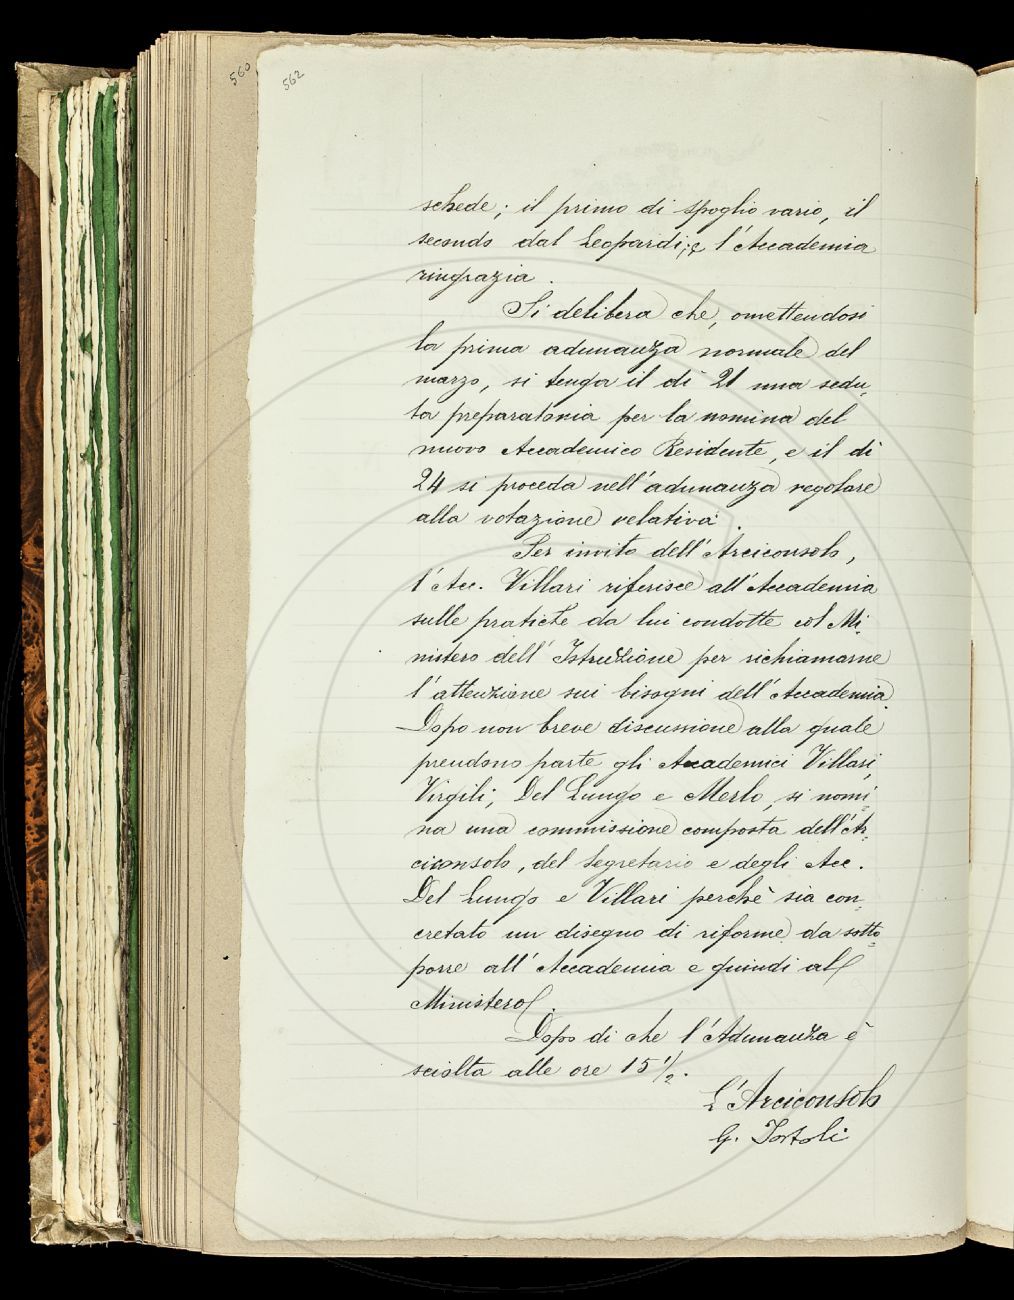 560
562
schede; il primo di spoglio vario, il
secondo dal Leopardi; e l'Accademia
ringrazia.
Si delibera che, omettendosi
la prima adunanza normale del
marzo, si tenga il dì 21 una sedu-
ta preparatoria per la nomina del
nuovo Accademico Residente, e il dì
24 si proceda nell'adunanza regolare
alla votazione relativa.
Per invito dell'Arciconsolo,
l'Acc. Villari riferisce all'Accademia
sulle pratiche da lui condotte col Mi-
nistero dell'Istruzione per richiamarne
l'attenzione sui bisogni dell'Accademia.
Dopo non breve discussione alla quale
prendono parte gli Accademici Villari,
Virgili, Del Lungo e Merlo, si nomi-
na una commissione composta dell'Ar-
ciconsolo, del Segretario e degli Acc.
Del Lungo e Villari perchè sia con-
cretato un disegno di riforme da sotto-
porre all'Accademia e quindi al
Ministero.
Dopo di che l'Adunanza è
sciolta alle ore 15 1/2.
L'Arciconsolo
G. Tortoli